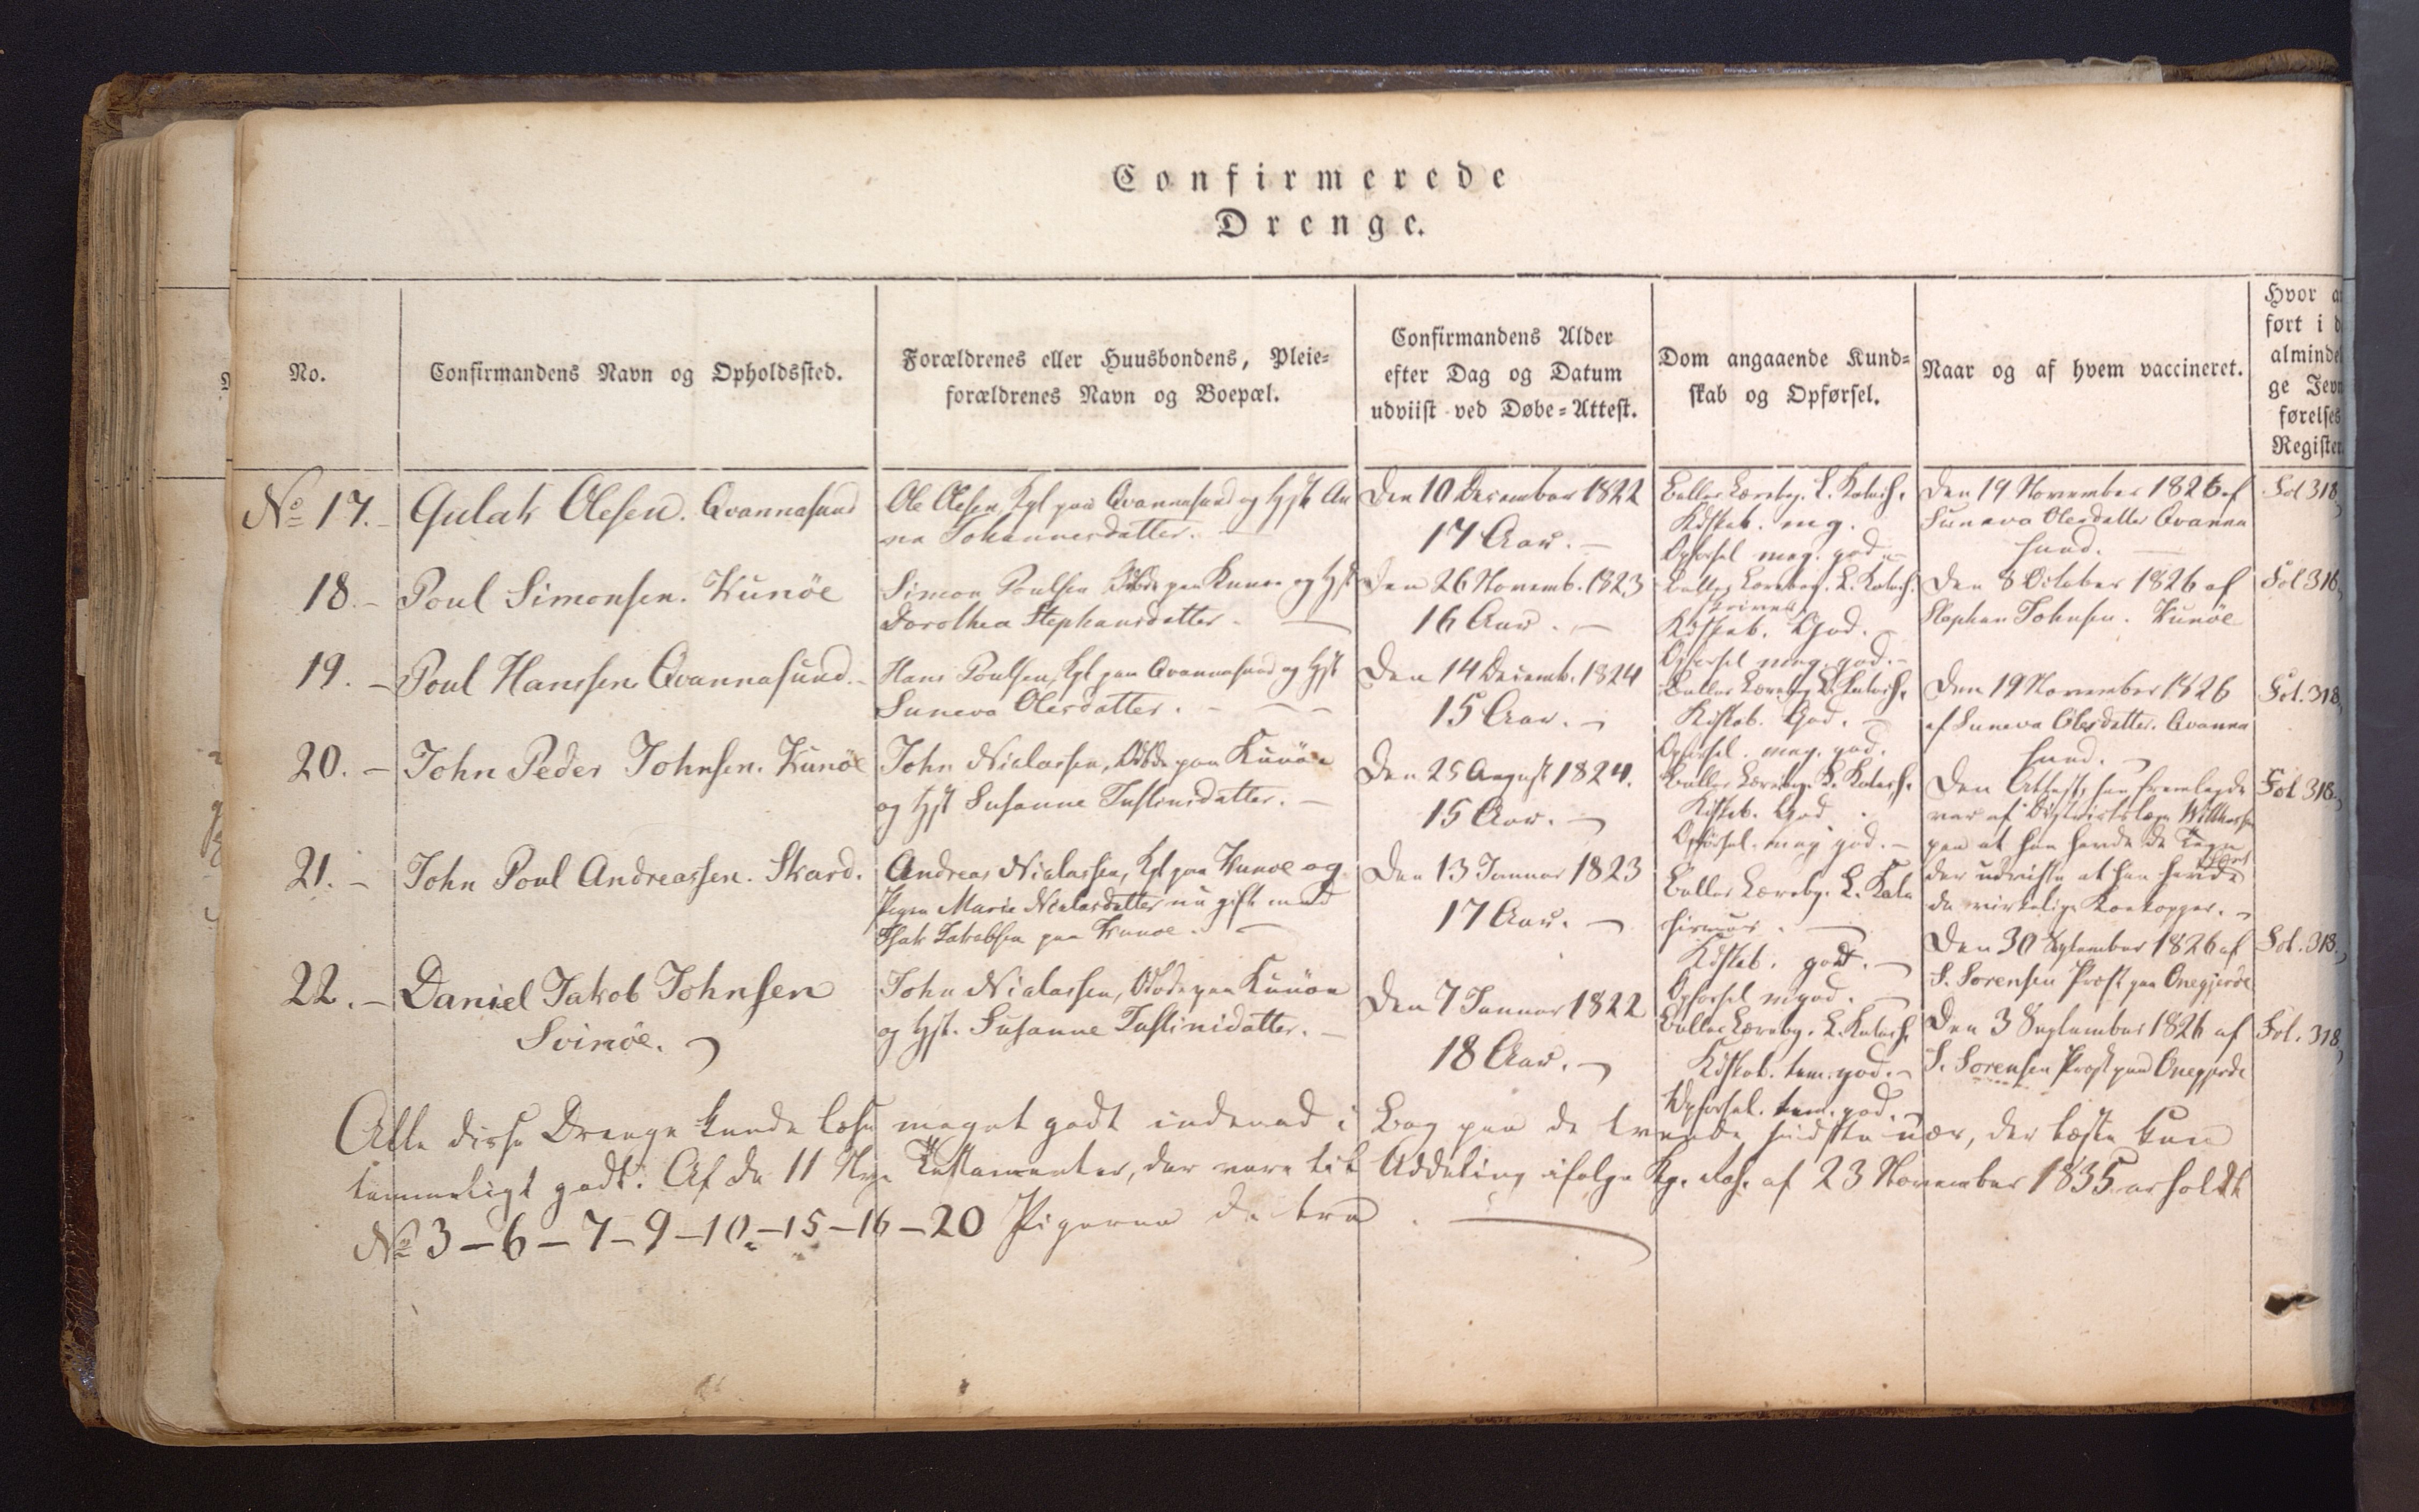 Confirmerede
Drenge.
No.
Confirmandens Navn og Opholdssted.
Forældrenes eller Huusbondens, Pleie-
forældrenes Navn og Boepæl.
Confirmandens Alder
efter Dag og Datum
udviist ved Døbe-Attest.
Dom angaaende Kund-
skab og Opførsel.
Naar og af hvem vaccineret.
Hvor
ført i
almindel
ge Jevn
førelses
Register.
No 17. Gulak Olesen. Qvannasund
Ole Olesen, Kgl paa Qvannasund og Hst An
na Johannesdatter.
Den 10 December 1822
17 Aar.
Balles Lærebg. L. Katech.
Kdskab. mg.
Opførsel meg. god.
Den 19 November 1826 af
Suneva Olesdatter Qvanna
sund.
Fol 318,
18. Poul Simonsen. Kunöe
Simon Poulsen paa Kunöe og Hst
Dorothea Stephansdatter.
Den 26 Novemb. 1823
16 Aar.
Balles Lærebog. L. Katech.
Kdskab. God.
Opførsel meg. god.
Den 8 October 1826 af
Stephan Johnsen. Kunöe
Fol 318,
19. Poul Hanssen Qvannasund.
Hans Poulsen, Kgl paa Qvannasund og Hst
Suneva Olesdatter.
Den 14 Decemb. 1824
15 Aar.
Balles Lærebg. L. Katech.
Kdskab. God.
Opførsel. meg. god.
Den 19 November 1826
af Suneva Olesdatter. Qvanna
sund.
Fol. 318,
20. John Peder Johnsen. Kunöe
John Niclassen, paa Kunöe
og Hst Susanne Justinidatter.
Den 25 August 1824.
15 Aar.
Balles Lærebg. L. Katech.
Kdskab. God
Opførsel. meg god.
Den Attest, han fremlagde
var af Districtslæge
paa at han havde de Tegn
der udviste at han havde
de virkelige Koekopper.
Fol 318.,
21. John Poul Andreassen. Skard.
Andreas Niclassen, Kgl paa Kunoe og
Pigen Marie Niclasdatter nu gift med
Isak Jakobsen paa Kunoe.
Den 13 Januar 1823
17 Aar.
Balles Lærebg. L. Kate
Kdskab. godt.
Opførsel mgod.
Den 30 September 1826 af
S. Sorensen Præst paa Onegjerde
Fol. 318.,
22. Daniel Jakob Johnsen
Svinöe.
John Niclassen, paa Kunöe
og Hst. Susanne Justinidatter.
Den 7 Januar 1822
18 Aar.
Balles Lærebg. L. Katech.
Kdskab. tem. god.
Opførsel. tem. god.
Den 3 September 1826 af
S. Sorensen Præst paa Onegjerde
Fol. 318,
Alle disse Drenge kunde læse meget godt indenad i Bog paa de trende sidste nær, der læste kun
temmeligt godt. Af de 11 Nye Testamenter, der vare til Uddeling ifølge Kg. Res. af 23 November 1835 erholdt
No 3-6-7-9-10-15-16-20 Pigerne de tre.